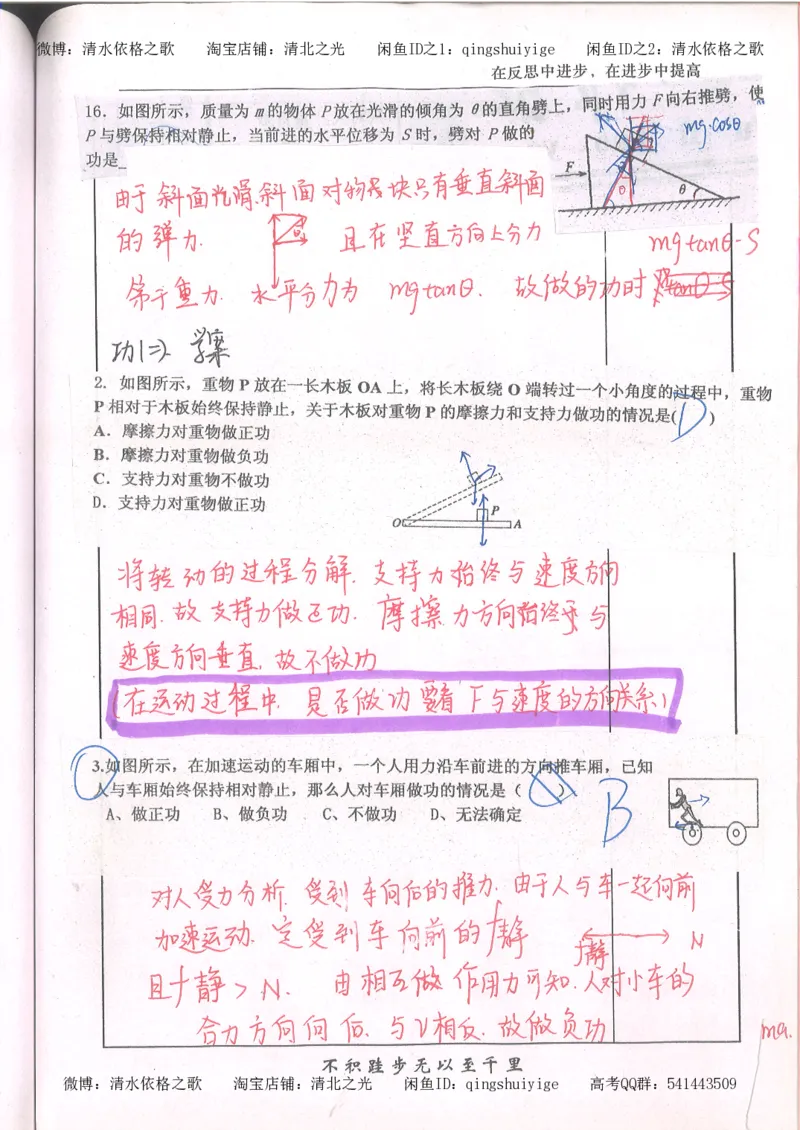 微博：清水依格之歌 淘宝店铺：清北之光 闲鱼ID之1：qingshuiyige 闲鱼ID之2：清水依格之歌
在反思中进步，在进步中提高
16．如图所示，质量为 m 的物体 P 放在光滑的倾角为 θ 的直角劈上，同时用力 F 向右推劈，使
P 与劈保持相对静止，当前进的水平位移为 S 时，劈对 P 做的
功是_
mg·cosθ
F
θ
由于斜面光滑.斜面对物块只有垂直斜面
的弹力. 且在竖直方向上分力
mgtanθ·S
等于重力. 水平分力为 mgtanθ. 故做的功时
功(=)
2．如图所示，重物 P 放在一长木板 OA 上，将长木板绕 O 端转过一个小角度的过程中，重物
P 相对于木板始终保持静止，关于木板对重物 P 的摩擦力和支持力做功的情况是( D )
A．摩擦力对重物做正功
B．摩擦力对重物做负功
C．支持力对重物不做功
D．支持力对重物做正功
P
O A
将转动的过程分解. 支持力始终与速度方向
相同.故支持力做正功. 摩擦力方向始终与
速度方向垂直.故不做功
(在运动过程中.是否做功要看F与速度的方向关系)
3.如图所示，在加速运动的车厢中，一个人用力沿车前进的方向推车厢，已知
人与车厢始终保持相对静止，那么人对车厢做功的情况是（ ）
A、做正功 B、做负功 C、不做功 D、无法确定
B
对人受力分析.受到车向后的推力.由于人与车一起向前
加速运动.定受到车向前的f静
f静 N
且f静>N. 由相互做作用力可知.人对小车的
合力方向向后.与V相反.故做负功
ma.
不积跬步无以至千里
微博：清水依格之歌 淘宝店铺：清北之光 闲鱼ID：qingshuiyige 高考QQ群：541443509